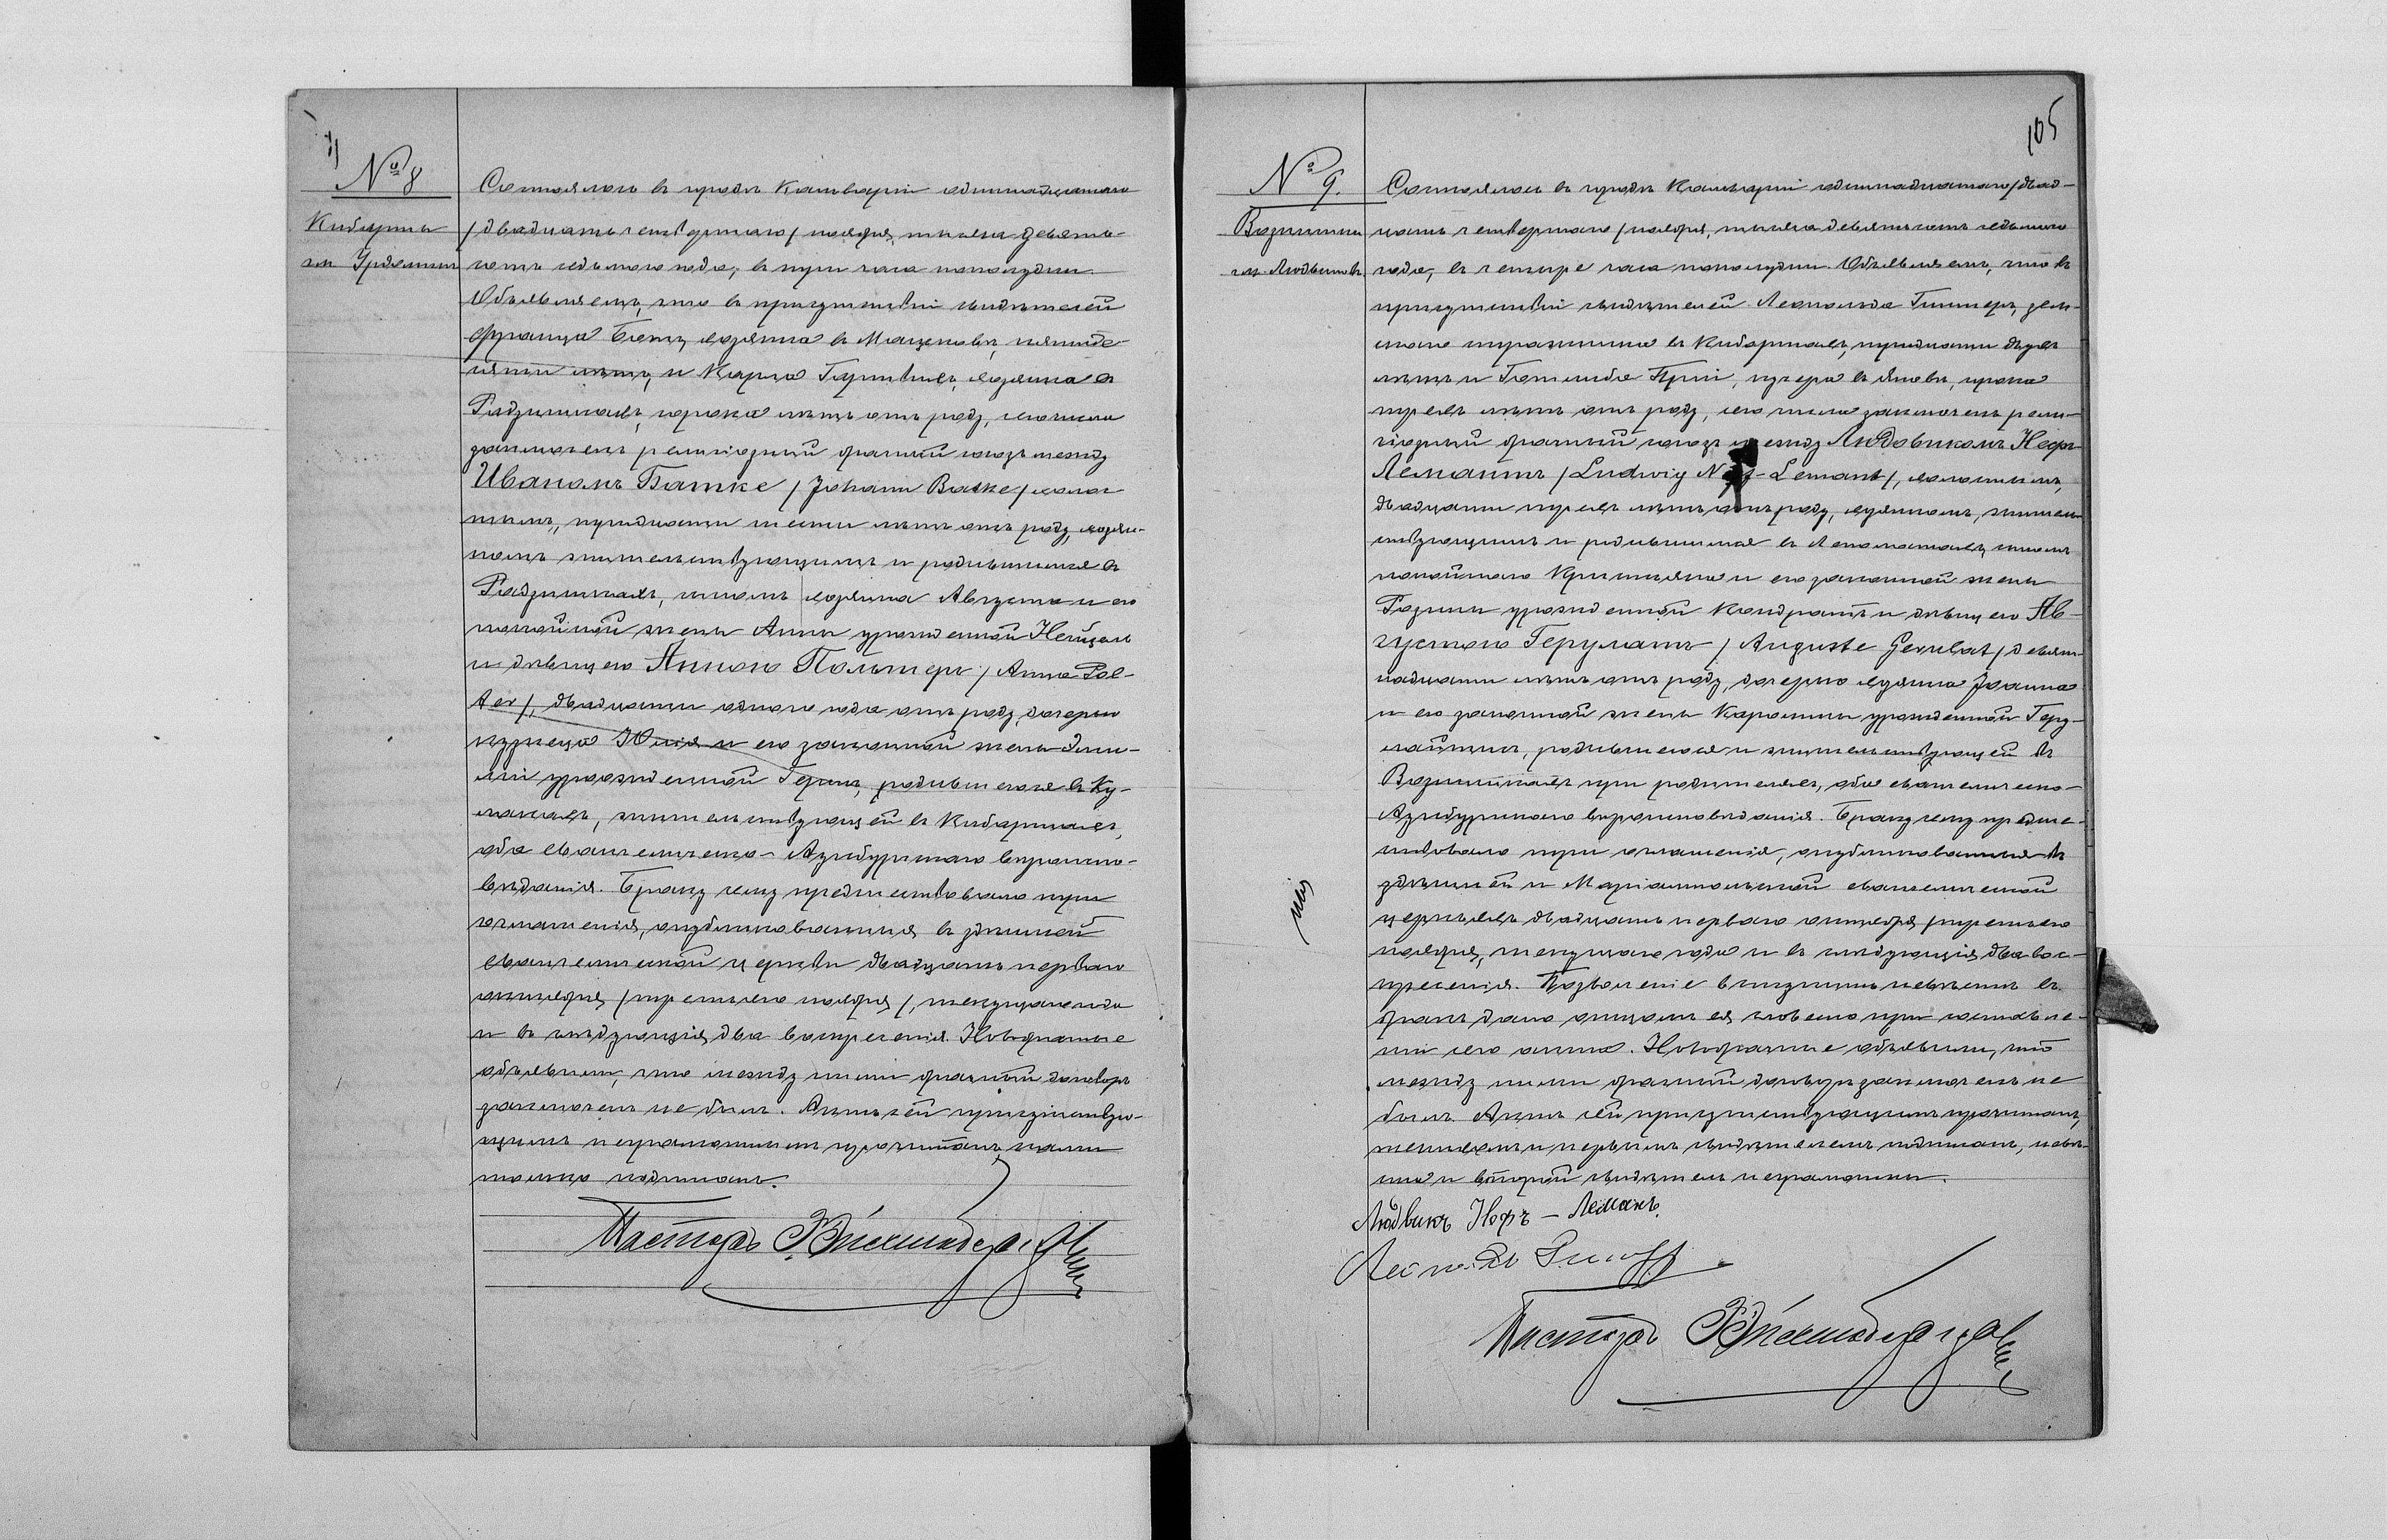 № 8
Кибарты
гм.
Состоялось въ городѣ Кальваріи одиннадцатаго
/двадцать четвертаго/ ноября, тысяча девять-
сотъ седьмого года, въ три часа пополудни.
Объявляемъ, что въ присутствіи свидѣтелей
Франца хозяина въ пятиде-
сяти лѣтъ, и Карла хозяина въ
сорока лѣтъ отъ роду, сего числа
заключенъ религіозный брачный союзъ между
Иваномъ Батке / Johann Batke / холос-
тымъ, тридцати шести лѣтъ отъ роду, хозяи-
номъ жительствующимъ и родившимся въ
сыномъ хозяина Августа и его
покойной жены Анны урожденной Нейцель
и дѣвицею Анною Польтеръ / Anna Pol-
ter /, двадцати одного года отъ роду, дочерью
кузнеца Юлія и его законной жены Эми-
ліи урожденной родившеюся въ Ку-
жительствующей въ Кибартахъ,
оба евангелическо-Аугсбургскаго вѣроиспо-
вѣданія. Браку сему предшествовало три
оглашенія, опубликованныя въ здѣшней
евангелической церкви двадцать перваго
октября /третьяго ноября/, текущаго года
и въ слѣдующія два воскресенія. Новобрачные
объявили, что между ними брачный договоръ
заключенъ не былъ. Актъ сей присутствую-
щимъ неграмотнымъ прочитанъ, нами
только подписанъ.
Пасторъ
105
№ 9.
гм. Людвиновъ
Состоялось въ городѣ Кальваріи одиннадцатаго /двад-
цать четвертаго/ ноября, тысяча девятьсотъ седьмого
года, въ четыре часа пополудни. Объявляемъ, что въ
присутствіи свидѣтелей Леопольда зем-
скаго стражника въ Кибартахъ, тридцати двухъ
лѣтъ и Готлиба сорока
трехъ лѣтъ отъ роду, сего числа заключенъ рели-
гіозный брачный союзъ между Людовикомъ Нефъ-
Лемантъ / Ludwig Lemant /, холостымъ,
двадцати трехъ лѣтъ отъ роду, хозяиномъ, житель-
ствующимъ и родившимся въ сыномъ
покойнаго Кристьяна и его законной жены
Розины урожденной Кондратъ и дѣвицею Ав-
густою Герулатъ / Auguste Gerulat / девят-
надцати лѣтъ отъ роду, дочерью хозяина Іоанна
и его законной жены Каролины урожденной Геру-
родившеюся и жительствующей въ
при родителяхъ, оба евангелическо-
Аугсбургскаго вѣроисповѣданія. Браку сему предше-
ствовало три оглашенія, опубликованныя въ
здѣшней и Маріампольской евангелической
церквяхъ двадцать перваго октября /третьяго
ноября, текущаго года и въ слѣдующія два вос-
кресенія. Позволеніе вступить невѣстѣ въ
бракъ дано отцомъ ея словесно при составле-
ніи сего акта. Новобрачные объявили, что
между ними брачный договоръ заключенъ не
былъ. Актъ сей присутствующимъ прочитанъ,
женихомъ и первымъ свидѣтелемъ подписанъ, невѣ-
ста и второй свидѣтель неграмотны.
Людвикъ Нефъ – Леманъ.
Пасторъ